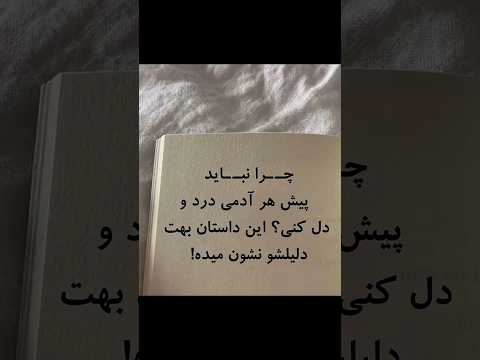 چــرا نبــاید
پیش هر آدمی درد و
دل کنی؟ این داستان بهت
دلیلشو نشون میده!